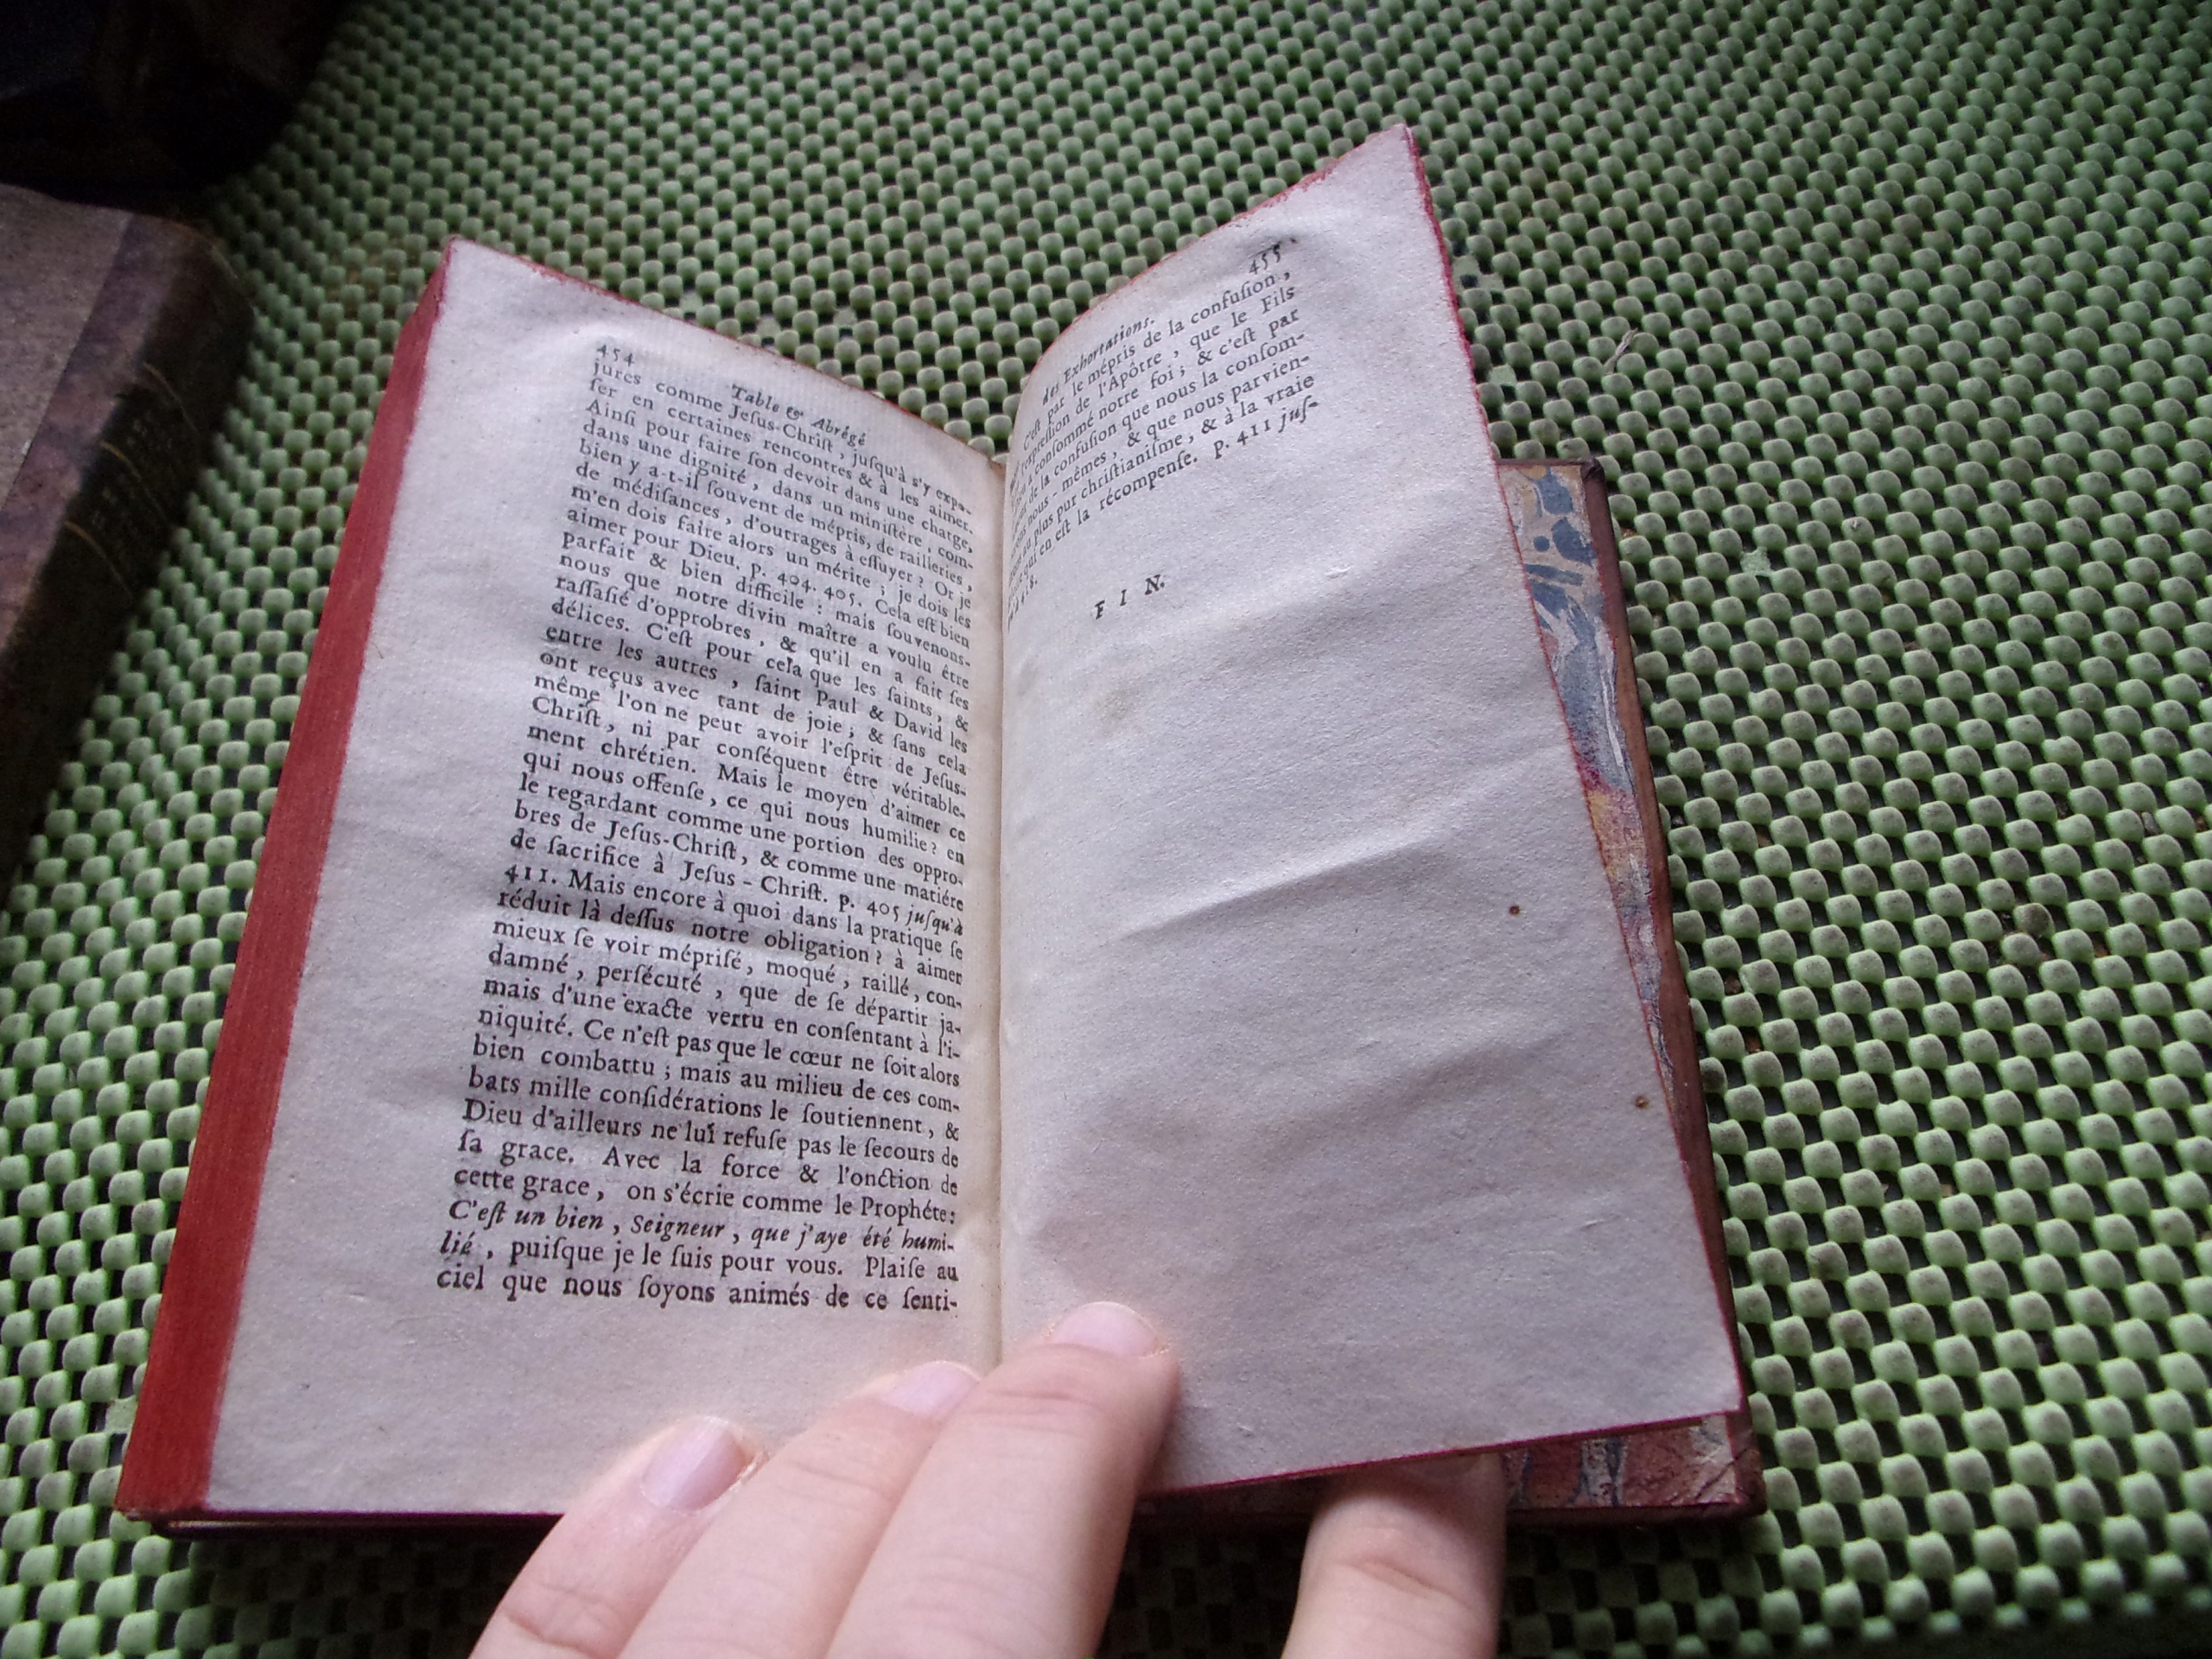 454
Table & Abrégé
jures comme Jeſus-Chriſt, juſqu'à s'y expo-
ſer en certaines rencontres & à les aimer.
Ainſi pour faire ſon devoir dans une charge,
dans une dignité, dans un miniſtère, com-
bien y a-t-il ſouvent de mépris, de railleries,
de médiſances, d'outrages à eſſuyer? Or je
m'en dois faire alors un mérite; je dois les
aimer pour Dieu. p. 404. 405. Cela eſt bien
parfait & bien difficile: mais ſouvenons-
nous que notre divin maître a voulu être
raſſaſié d'opprobres, & qu'il en a fait ſes
délices. C'eſt pour cela que les ſaints, &
entre les autres, ſaint Paul & David les
ont reçus avec tant de joie; & ſans cela
même l'on ne peut avoir l'eſprit de Jeſus-
Chriſt, ni par conſéquent être véritable-
ment chrétien. Mais le moyen d'aimer ce
qui nous offenſe, ce qui nous humilie? en
le regardant comme une portion des oppro-
bres de Jeſus-Chriſt, & comme une matiére
de ſacrifice à Jeſus-Chriſt. p. 405 juſqu'à
411. Mais encore à quoi dans la pratique ſe
réduit là deſſus notre obligation? à aimer
mieux ſe voir mépriſé, moqué, raillé, con-
damné, perſécuté, que de ſe départir ja-
mais d'une exacte vertu en conſentant à l'i-
niquité. Ce n'eſt pas que le cœur ne ſoit alors
bien combattu; mais au milieu de ces com-
bats mille conſidérations le ſoutiennent, &
Dieu d'ailleurs ne lui refuſe pas le ſecours de
ſa grace. Avec la force & l'onction de
cette grace, on s'écrie comme le Prophéte:
C'eſt un bien, Seigneur, que j'aye été humi-
lié, puiſque je le ſuis pour vous. Plaiſe au
ciel que nous ſoyons animés de ce ſenti-
des Exhortations.
455
C'eſt par le mépris de la confuſion,
l'expreſſion de l'Apôtre, que le Fils
a conſommé notre foi; & c'eſt par
de la confuſion que nous la conſom-
nous-mêmes, & que nous parvien-
au plus pur chriſtianiſme, & à la vraie
qui en eſt la récompenſe. p. 411 juſ-
418.
FIN.